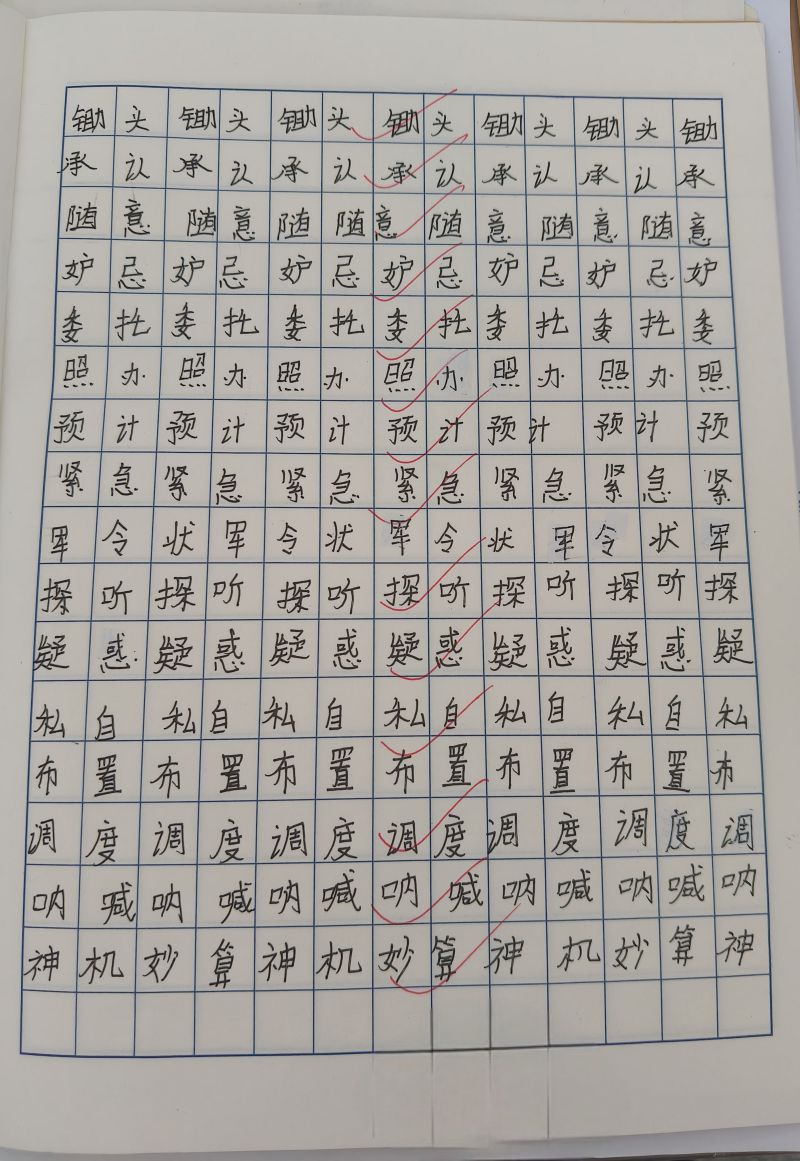 锄头锄头锄头锄头锄头锄头锄
承认承认承认承认承认承认承
随意随意随随意随意随意随意
妒忌妒忌妒忌妒忌妒忌妒忌妒
委托委托委托委托委托委托委
照办照办照办照办照办照办照
预计预计预计预计预计预计预
紧急紧急紧急紧急紧急紧急紧
军令状军令状军令状军令状军
探听探听探听探听探听探听探
疑惑疑惑疑惑疑惑疑惑疑惑疑
私自私自私自私自私自私自私
布置布置布置布置布置布置布
调度调度调度调度调度调度调
呐喊呐喊呐喊呐喊呐喊呐喊呐
神机妙算神机妙算神机妙算神